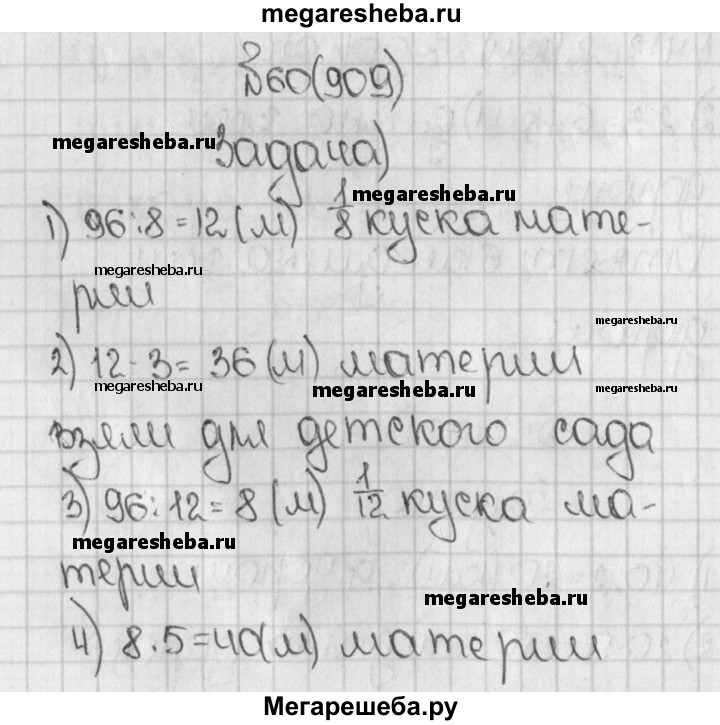 megaresheba.ru
№60(909)
megaresheba.ru
Задача)
megaresheba.ru
1) 96:8=12(м) 1/8 куска мате-
megaresheba.ru
рии
megaresheba.ru
2) 12·3= 36(м) материи
megaresheba.ru megaresheba.ru megaresheba.ru
взяли для детского сада
3) 96:12=8(м) 1/12 куска ма-
megaresheba.ru
терии
megaresheba.ru
4) 8·5=40(м) материи
Мегарешеба.ру